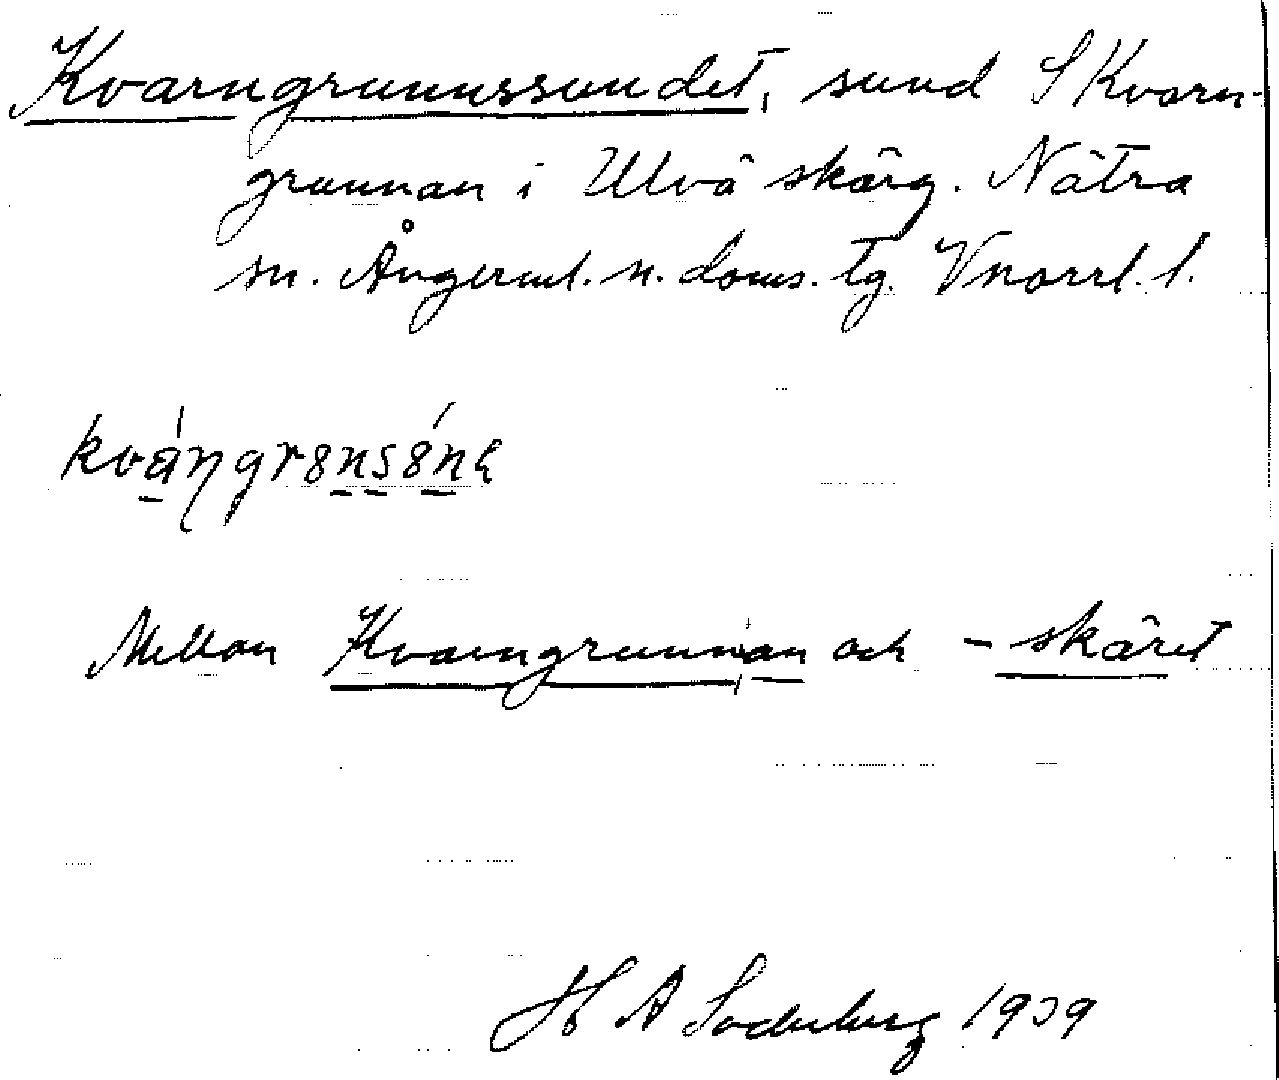 Kvarngrunnssundet, sund S Kvarn-
grunnan i Ulvö skärg. Nätra
sn. Ångerml. n. doms. tg. Vnorrl. l.
Mellan Kvarngrunnan och - skäret
H A Söderberg 1939